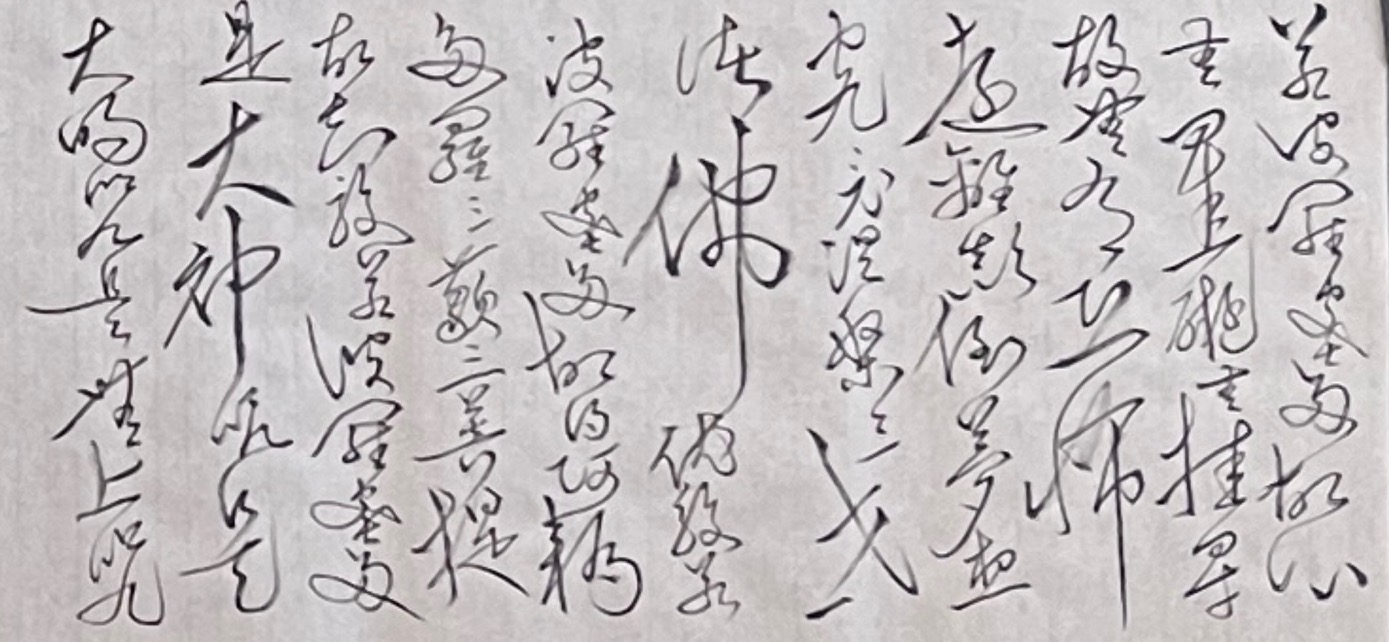 若波羅蜜多故心
無罣礙無挂㝵
故無有恐怖
遠離顛倒夢想
究竟涅槃三世
諸佛依般若
波羅蜜多故得阿耨
多羅三藐三菩提
故知般若波羅蜜多
是大神咒是
大明咒是無上咒